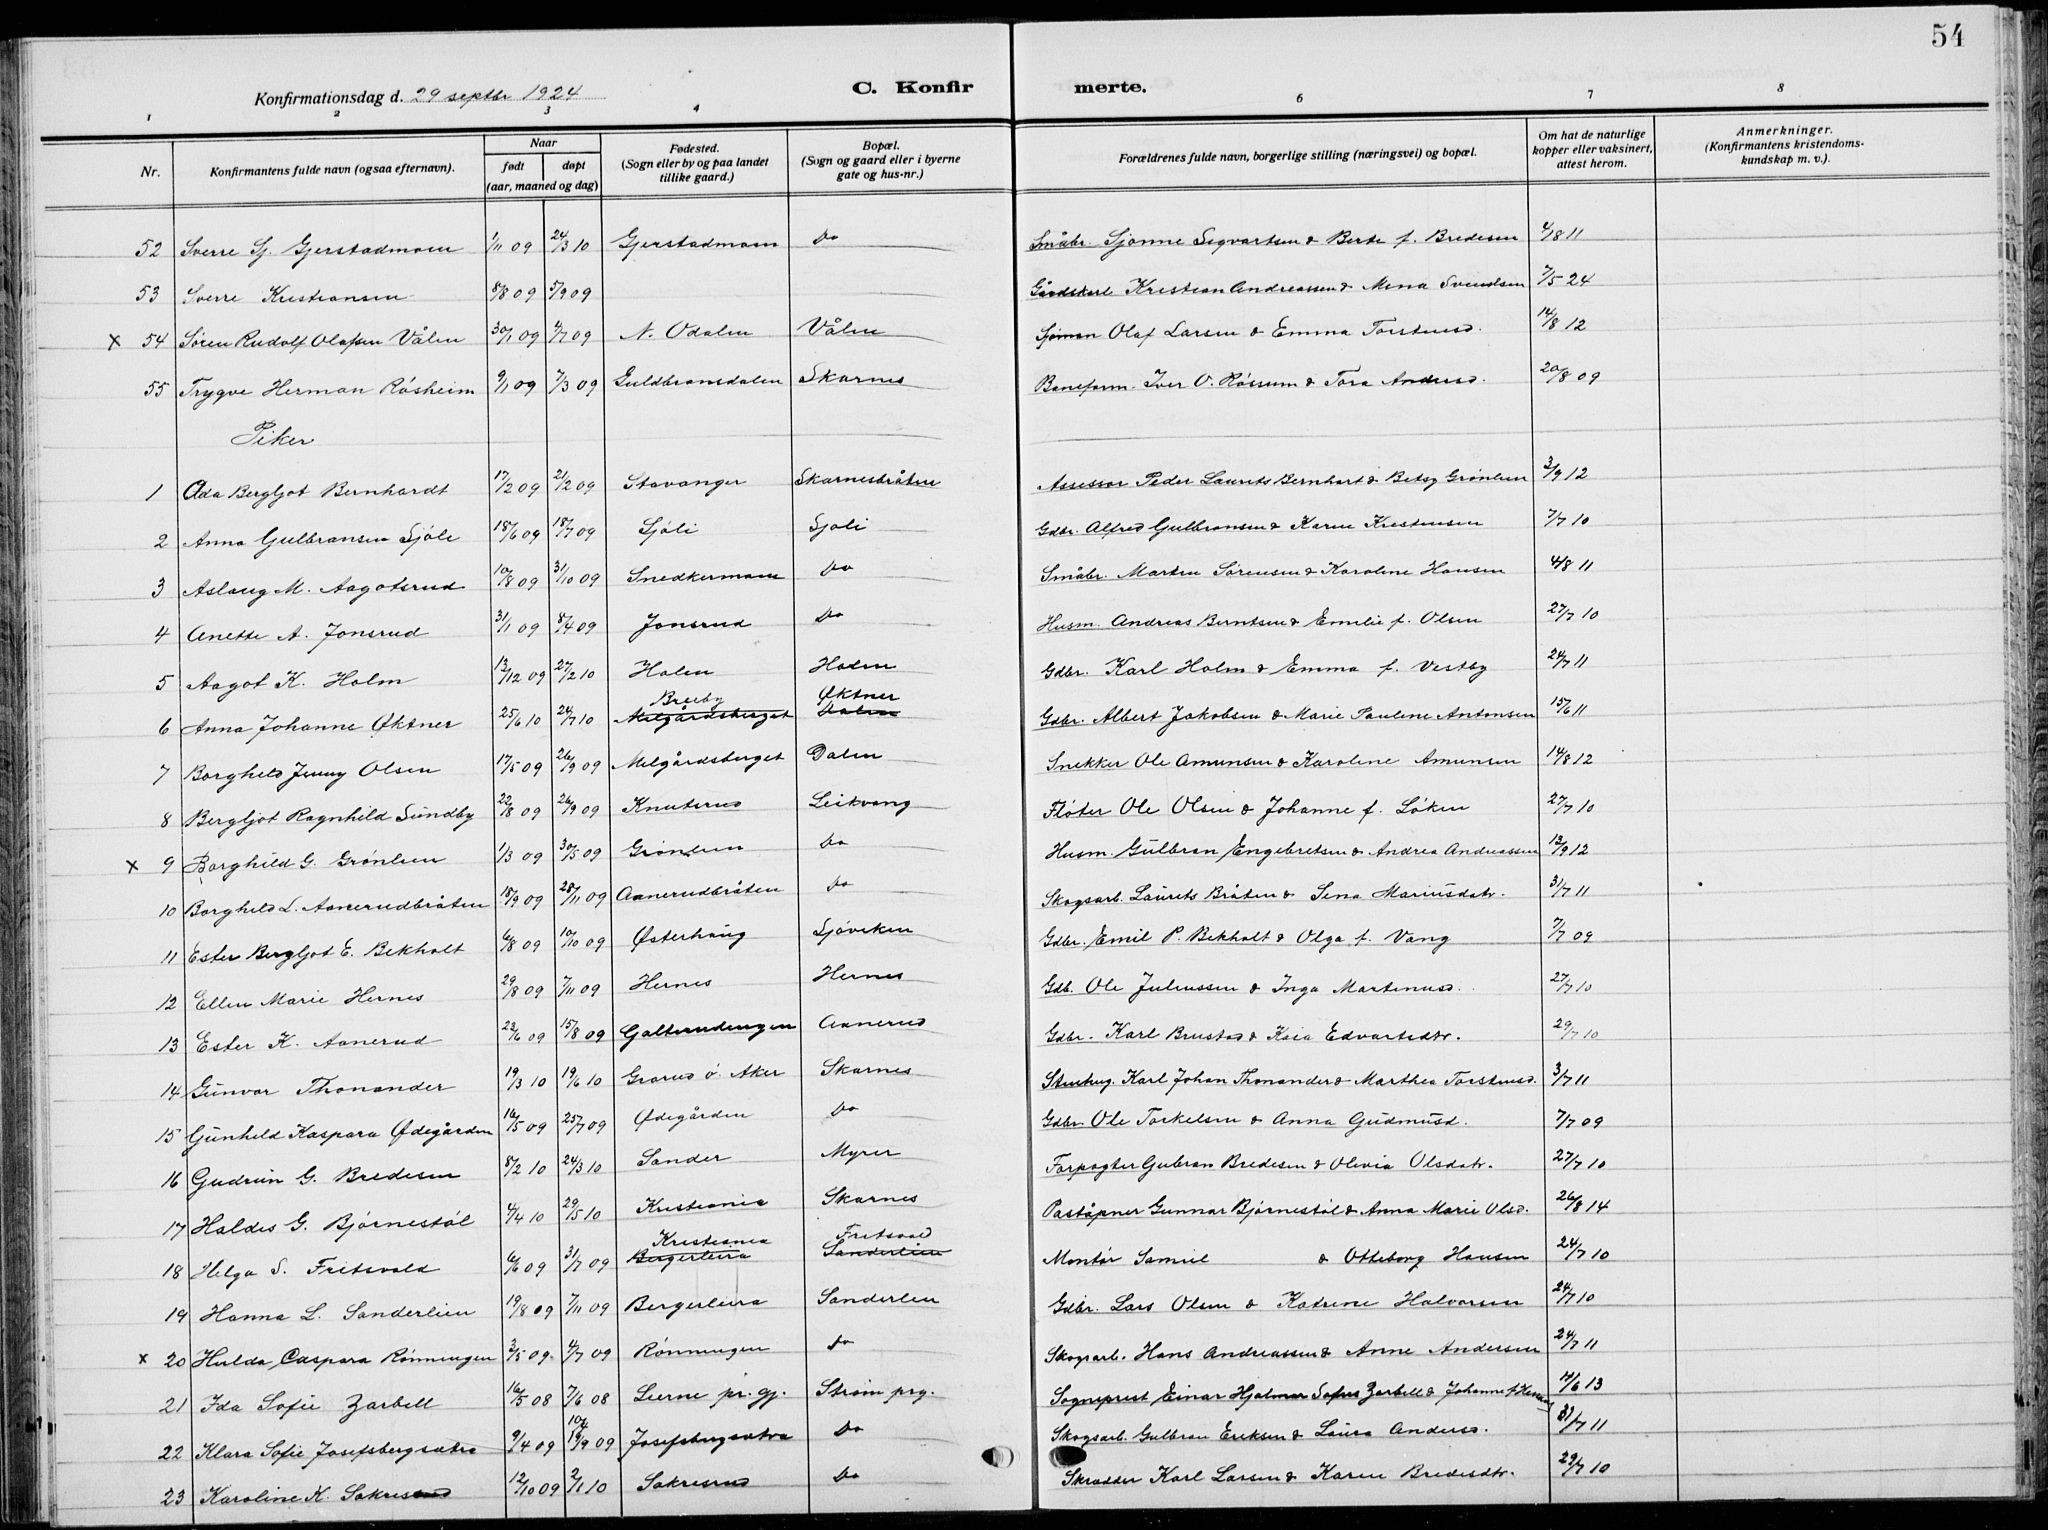 54
Konfirmationsdag d. 29 septbr 1924 C. Konfirmerte.
1 2 3 4 6 7 8
Nr. Konfirmantens fulde navn (ogsaa efternavn). Naar født døpt (aar, maaned og dag) Fødested. (Sogn eller by og paa landet tillike gaard.) Bopæl. (Sogn og gaard eller i byerne gate og hus-nr.) Forældrenes fulde navn, borgerlige stilling (næringsvei) og bopæl. Om hat de naturlige kopper eller vaksinert, attest herom. Anmerkninger. (Konfirmantens kristendomskundskap m. v.).
52 Sverre Sj. Gjerstadmoen 1/11 09 24/3 10 Gjerstadmoen Do Småbr. Sjønne Sigvartsen & Berte f. Bredesen 4/8 11
53 Sverre Kristiansen 8/8 09 5/9 09 Gårdskarl Kristian Andreassen & Mina Svendsen 7/5 24
x 54 Søren Rudolf Olafsen Vålen 30/1 09 4/7 09 N. Odalen Vålen Sjøman Olaf Larsen & Emma Torstensd. 14/8 12
55 Trygve Herman Røsheim 9/1 09 7/3 09 Guldbransdalen Skarnes Baneform. Iver O. Røssum & Tora Andersd. 20/8 09
Piker
1 Ada Bergljot Bernhardt 17/2 09 21/2 09 Stavanger Skarnesbråten Assessor Peder Laurits Bernhart & Betsy Grønlien 3/9 12
2 Anna Gulbransen Sjøli 18/6 09 18/7 09 Sjøli Sjøli Gdbr. Alfred Gulbransen & Karen Kristensen 7/7 10
3 Aslaug M. Aagotsrud 10/8 09 31/10 09 Snedkermoen Do Småbr. Marten Sørensen & Karoline Hansen 4/8 11
4 Anette A. Jonsrud 31/1 09 8/4 09 Jonsrud Do Husm. Andreas Berntsen & Emilie f. Olsen 27/7 10
5 Aagot K. Holm 13/12 09 27/2 10 Holen Holen Gdbr. Karl Holm & Emma f. Vestby 24/7 11
6 Anna Johanne Øktner 25/6 10 24/7 10 Breeby Melgårdsberget Øktner Dalen Gdbr. Albert Jakobsen & Marie Pauline Antonsen 15/6 11
7 Borghild Jenny Olsen 17/5 09 26/9 09 Melgårdsberget Dalen Snekker Ole Amunsen & Karoline Amunsen 14/8 12
8 Bergljot Ragnhild Sundby 22/8 09 26/9 09 Knutsrud Leikvang Fløter Ole Olsen & Johanne f. Løken 27/7 10
x 9 Borghild G. Grønlien 1/3 09 30/5 09 Grønlien Do Husm. Gulbran Engebretsen & Andrea Andreassen 13/9 12
10 Borghild L. Aanerudbråten 18/9 09 28/11 09 Aanerudbråten Do Skogsarb. Laurits Bråten & Sina Mariusdatr. 31/7 11
11 Ester Bergljot E. Bekholt 6/8 09 10/10 09 Østerhaug Sjøviken Gdbr. Emil P. Bekholt & Olga f. Vang 7/7 09
12 Ellen Marie Hernes 29/8 09 7/11 09 Hernes Hernes Gdb. Ole Juliussen & Inga Martinusd. 27/7 10
13 Ester K. Aanerud 23/6 09 15/8 09 Galterudengen Aanerud Gdbr. Karl Brustad & Kaia Edvartsdtr. 29/7 10
14 Gunvor Thonander 19/3 10 19/6 10 Grorud ø. Aker Skarnes Stenhug. Karl Johan Thonander & Marthea Torstensd. 3/7 11
15 Gunhild Kaspara Ødegården 16/5 09 25/7 09 Ødegården Do Gdbr. Ole Torkelsen & Anna Gudmusd. 7/7 09
16 Gudrun G. Bredesen 8/2 10 24/3 10 Sander Myrer Forpagter Gubran Bredesen & Olivia Olsdatr. 27/7 10
17 Haldis G. Bjørnestøl 4/4 10 29/5 10 Kristiania Skarnes Poståpner Gunnar Bjørnestøl & Anna Marie Olsd. 26/8 14
18 Helga S. Fritsvold 6/6 09 31/7 09 Kristiania Bergerleira Fritsvold Sanderlien Montør Samuel & Otteborg Hansen 24/7 10
19 Hanna L. Sanderlien 19/8 09 7/11 09 Bergerleira Sanderlien Gdbr. Lars Olsen & Katrine Halvorsen 24/7 10
x 20 Hulda Caspara Rønningen 2/5 09 4/7 09 Rønningen Do Skogsarb. Hans Andreassen & Anne Andersen 24/7 11
21 Ida Sofie Zarbell 16/5 08 7/6 08 Lierne pr. gj. Strøm prg. Sogneprest Einar Hjalmar Sofus Zarbell & Johanne f. 14/6 13
22 Klara Sofie Josefsbergsætra 9/4 09 19/9 09 Josefsbergsætra Do Skogsarb. Gulbran Eriksen & Laura Andersd. 31/7 11
23 Karoline K. Sakresrud 12/10 09 2/1 10 Sakresrud Do Skrædder Karl Larsen & Karen Bredesdtr. 29/7 10